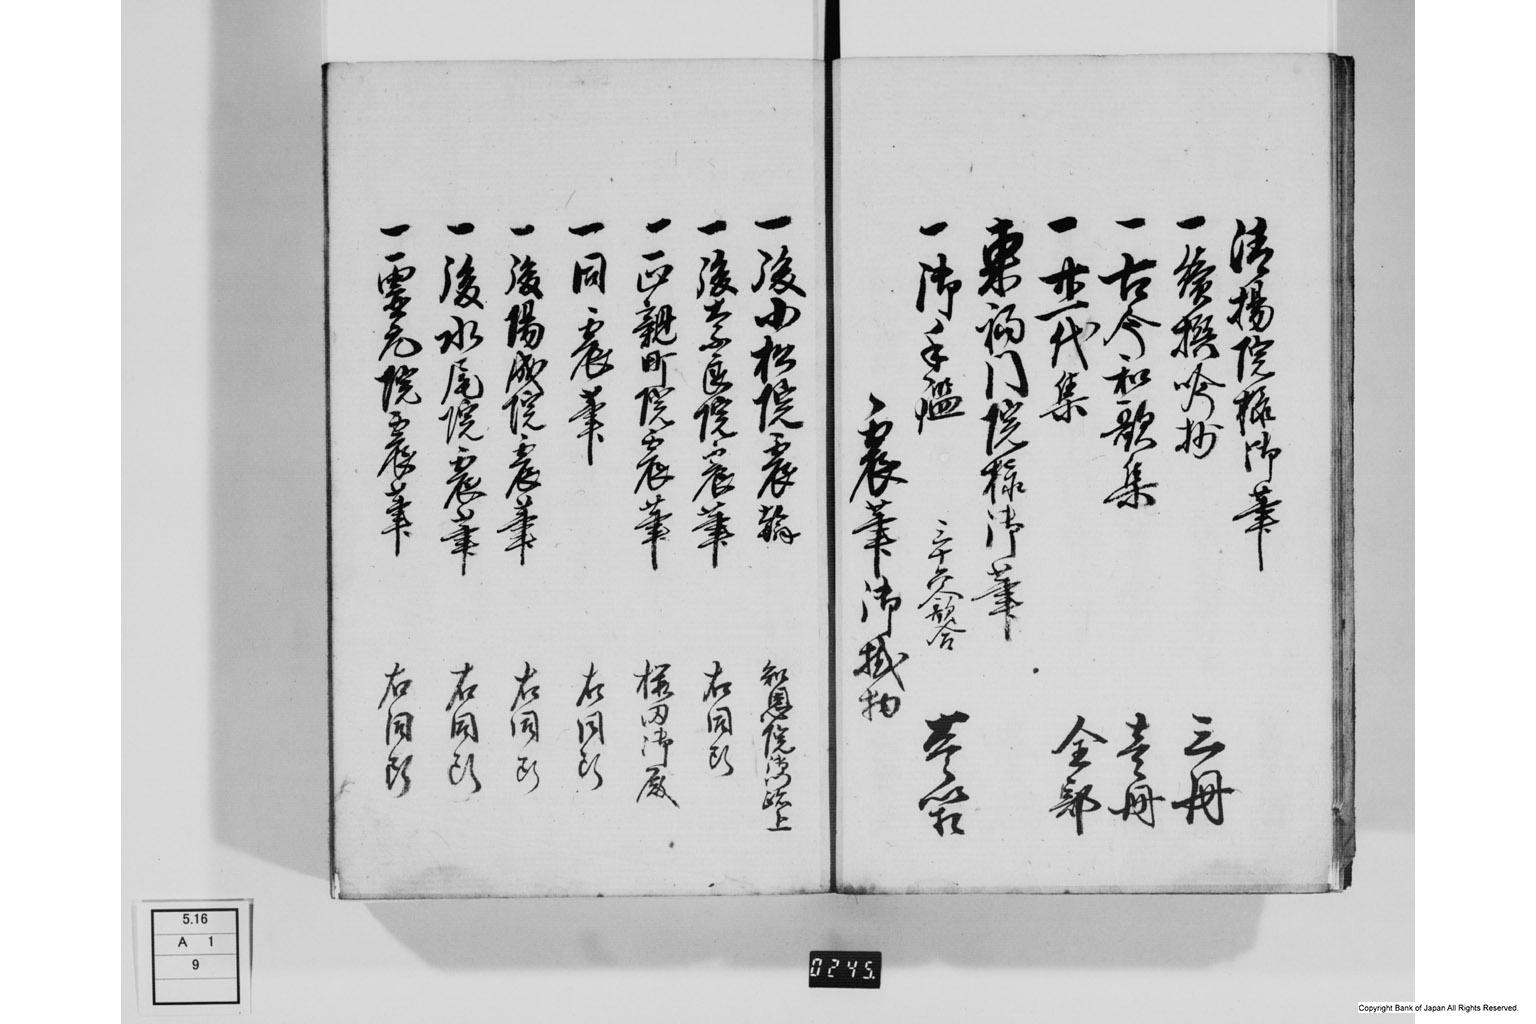 清揚院様御筆
一續撰吟抄 三冊
一古今和歌集 壱冊
一廿一代集 全部
東福門院様御筆
一御手鑑 三十六人歌合 壱箱
宸筆御掛物
一後小松院宸翰 知恩院溥 上
一後奈良院宸筆 右同断
一正親町院宸筆 桜田御殿
一同宸筆 右同断
一後陽成院宸筆 右同断
一後水尾院宸筆 右同断
一霊元院宸筆 右同断
5.16
A 1
9
0245.
Copyright Bank of Japan All Rights Reserved.